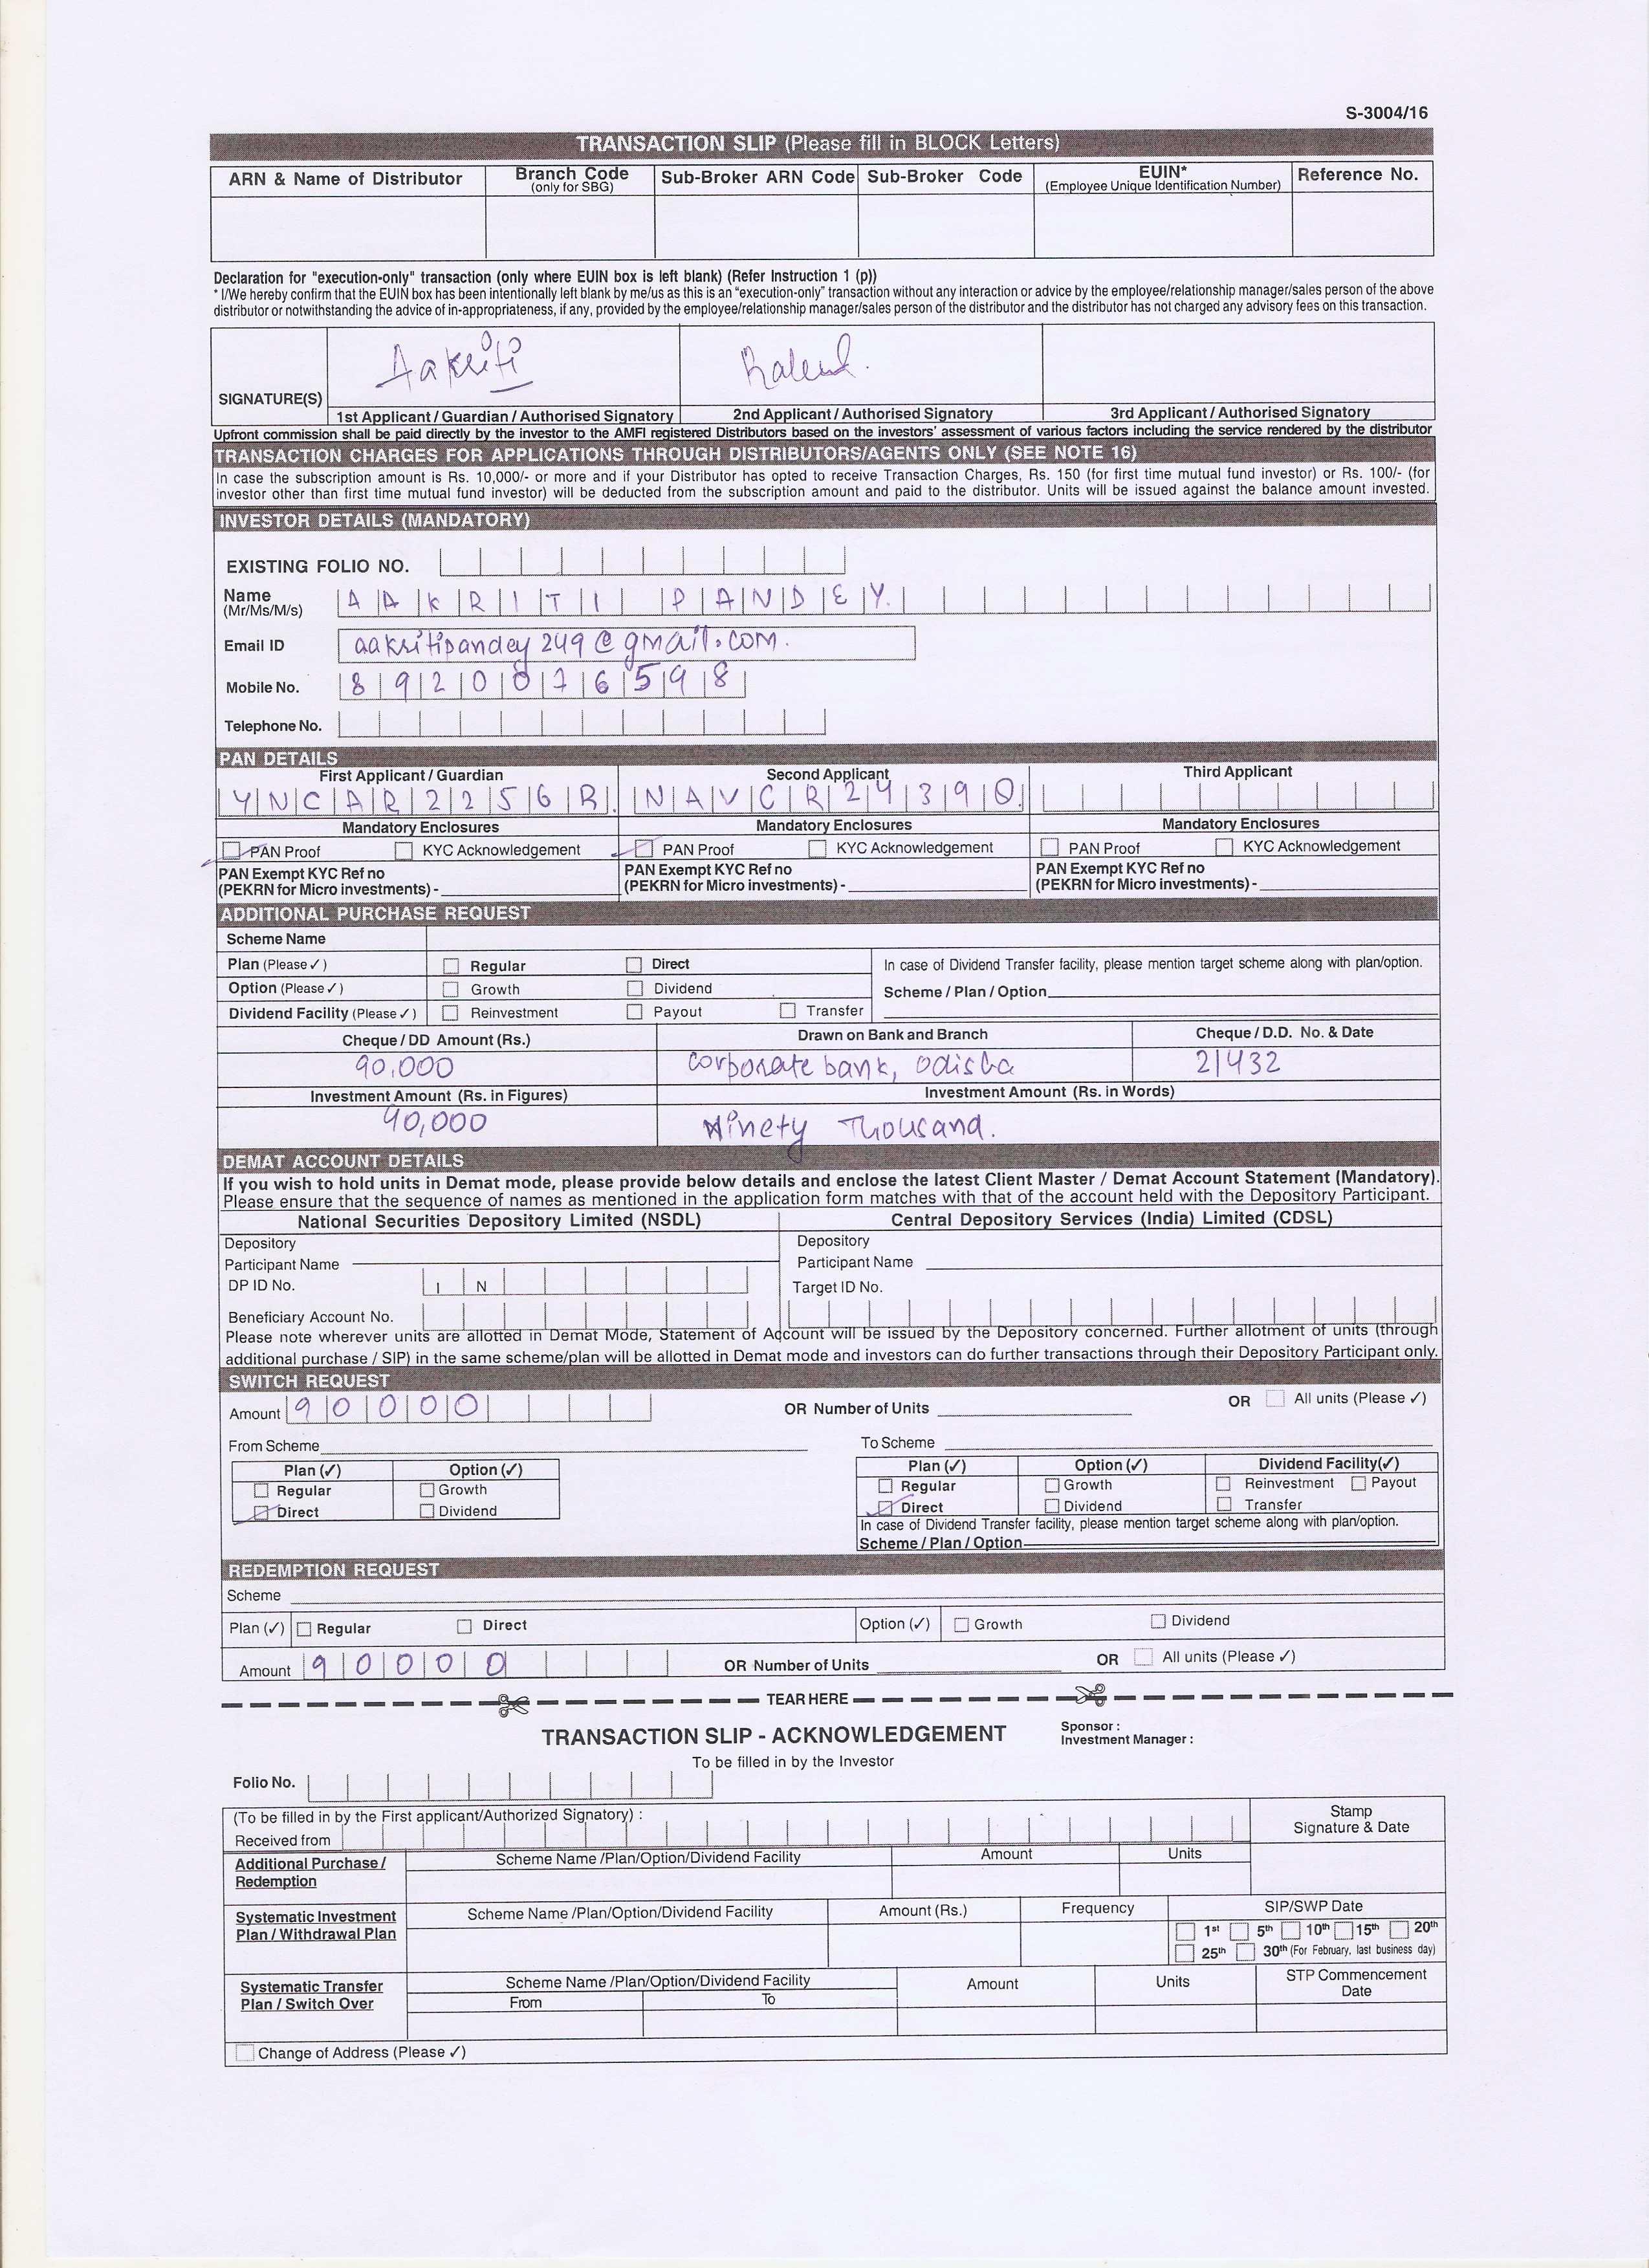 S-3004/16
TRANSACTION SLIP (Please fill in BLOCK Letters)
ARN & Name of Distributor Branch Code (only for SBG) Sub-Broker ARN Code Sub-Broker Code EUIN* (Employee Unique Identification Number) Reference No.
Declaration for "execution-only" transaction (only where EUIN box is left blank) (Refer Instruction 1 (p))
* I/We hereby confirm that the EUIN box has been intentionally left blank by me/us as this is an "execution-only" transaction without any interaction or advice by the employee/relationship manager/sales person of the above
distributor or notwithstanding the advice of in-appropriateness, if any, provided by the employee/relationship manager/sales person of the distributor and the distributor has not charged any advisory fees on this transaction.
Aakriti
SIGNATURE(S)
1st Applicant / Guardian / Authorised Signatory 2nd Applicant / Authorised Signatory 3rd Applicant / Authorised Signatory
Upfront commission shall be paid directly by the investor to the AMFI registered Distributors based on the investors' assessment of various factors including the service rendered by the distributor
TRANSACTION CHARGES FOR APPLICATIONS THROUGH DISTRIBUTORS/AGENTS ONLY (SEE NOTE 16)
In case the subscription amount is Rs. 10,000/- or more and if your Distributor has opted to receive Transaction Charges, Rs. 150 (for first time mutual fund investor) or Rs. 100/- (for
investor other than first time mutual fund investor) will be deducted from the subscription amount and paid to the distributor. Units will be issued against the balance amount invested.
INVESTOR DETAILS (MANDATORY)
EXISTING FOLIO NO.
Name (Mr/Ms/M/s) AAKRITI PANDEY.
Email ID aakritipandey249@gmail.com.
Mobile No. 8920876598
Telephone No.
PAN DETAILS
First Applicant / Guardian Second Applicant Third Applicant
YNCAR2256R. NAVCR24390.
Mandatory Enclosures Mandatory Enclosures Mandatory Enclosures
PAN Proof KYC Acknowledgement PAN Proof KYC Acknowledgement PAN Proof KYC Acknowledgement
PAN Exempt KYC Ref no PAN Exempt KYC Ref no PAN Exempt KYC Ref no
(PEKRN for Micro investments) - (PEKRN for Micro investments) - (PEKRN for Micro investments) -
ADDITIONAL PURCHASE REQUEST
Scheme Name
Plan (Please ✓) Regular Direct In case of Dividend Transfer facility, please mention target scheme along with plan/option.
Option (Please ✓) Growth Dividend Scheme / Plan / Option
Dividend Facility (Please ✓) Reinvestment Payout Transfer
Cheque / DD Amount (Rs.) Drawn on Bank and Branch Cheque / D.D. No. & Date
90,000 Corporate bank, Odisha 21432
Investment Amount (Rs. in Figures) Investment Amount (Rs. in Words)
90,000 Ninety Thousand.
DEMAT ACCOUNT DETAILS
If you wish to hold units in Demat mode, please provide below details and enclose the latest Client Master / Demat Account Statement (Mandatory).
Please ensure that the sequence of names as mentioned in the application form matches with that of the account held with the Depository Participant.
National Securities Depository Limited (NSDL) Central Depository Services (India) Limited (CDSL)
Depository Depository
Participant Name Participant Name
DP ID No. I N Target ID No.
Beneficiary Account No.
Please note wherever units are allotted in Demat Mode, Statement of Account will be issued by the Depository concerned. Further allotment of units (through
additional purchase / SIP) in the same scheme/plan will be allotted in Demat mode and investors can do further transactions through their Depository Participant only.
SWITCH REQUEST
Amount 90000 OR Number of Units OR All units (Please ✓)
From Scheme To Scheme
Plan (✓) Option (✓) Plan (✓) Option (✓) Dividend Facility(✓)
Regular Growth Regular Growth Reinvestment Payout
Direct Dividend Direct Dividend Transfer
In case of Dividend Transfer facility, please mention target scheme along with plan/option.
Scheme / Plan / Option
REDEMPTION REQUEST
Scheme
Plan (✓) Regular Direct Option (✓) Growth Dividend
Amount 90000 OR Number of Units OR All units (Please ✓)
TEAR HERE
TRANSACTION SLIP - ACKNOWLEDGEMENT Sponsor :
Investment Manager :
To be filled in by the Investor
Folio No.
(To be filled in by the First applicant/Authorized Signatory) : Stamp
Signature & Date
Received from
Additional Purchase / Redemption Scheme Name /Plan/Option/Dividend Facility Amount Units
Systematic Investment Plan / Withdrawal Plan Scheme Name /Plan/Option/Dividend Facility Amount (Rs.) Frequency SIP/SWP Date
1st 5th 10th 15th 20th
25th 30th (For February, last business day)
Systematic Transfer Plan / Switch Over Scheme Name /Plan/Option/Dividend Facility Amount Units STP Commencement Date
From To
Change of Address (Please ✓)